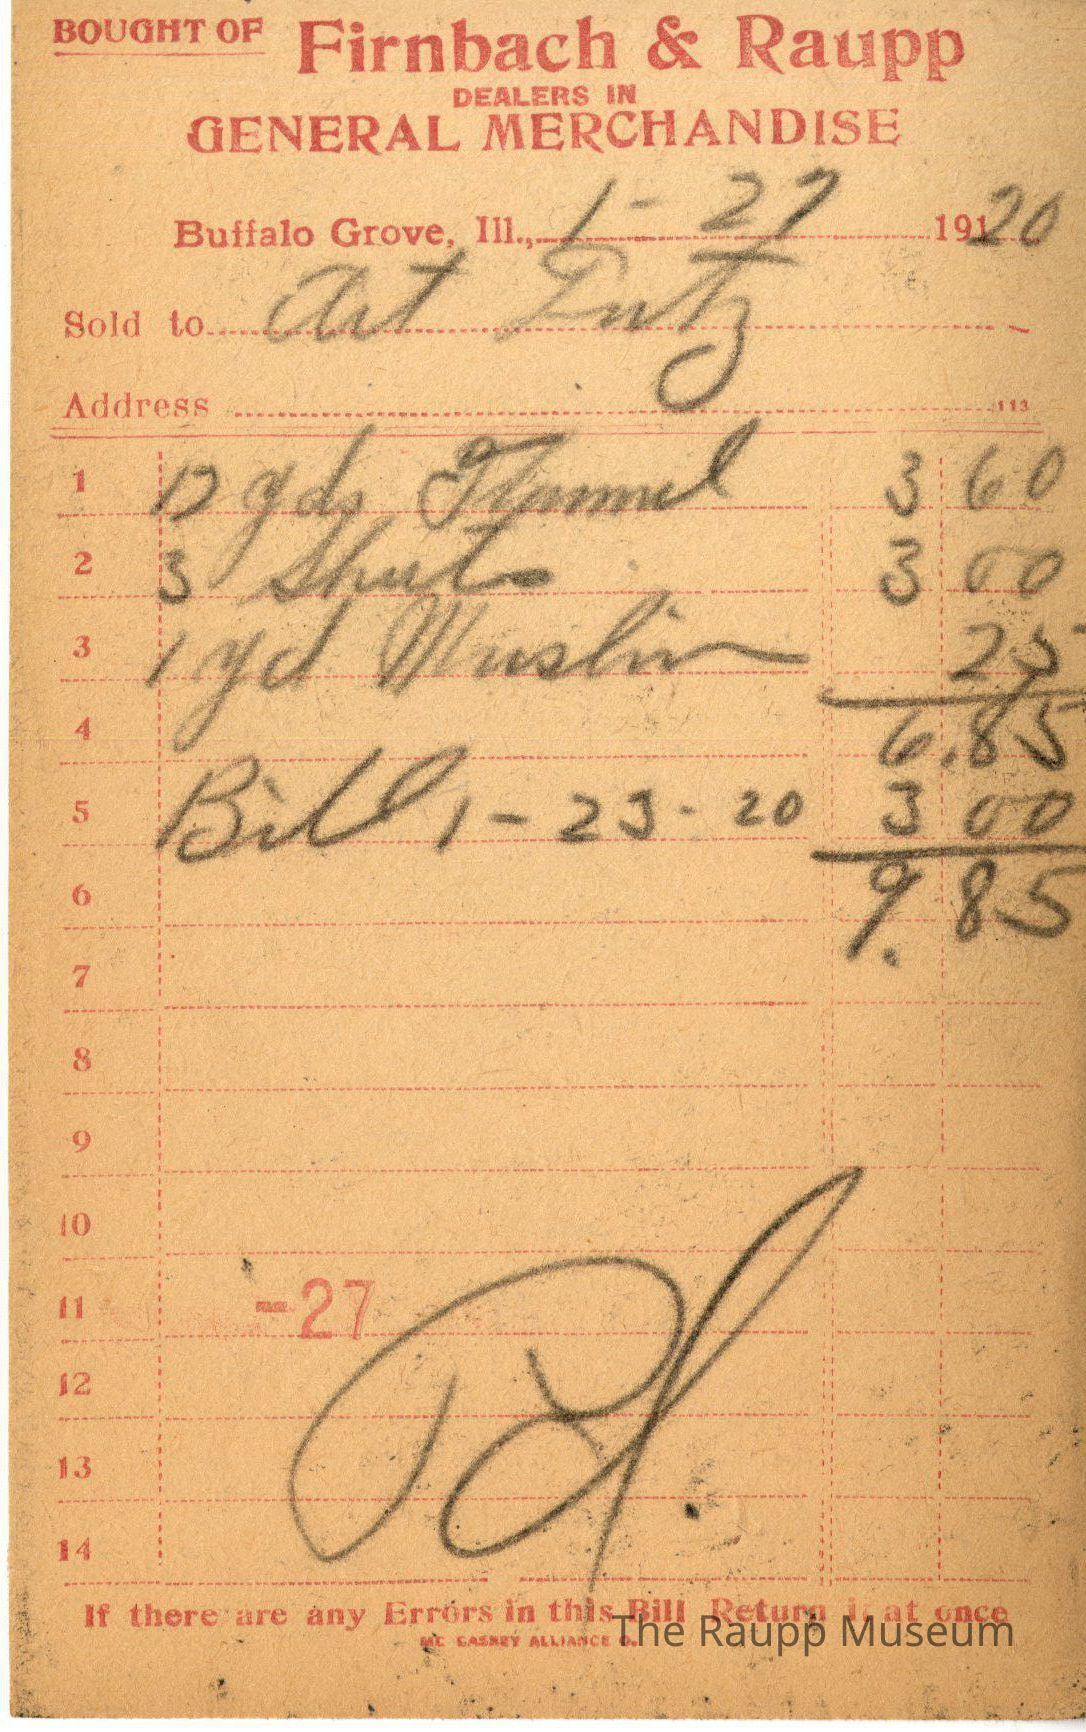 BOUGHT OF Firnbach & Raupp
DEALERS IN
GENERAL MERCHANDISE
Buffalo Grove, Ill., 1-27 19120
Sold to Art
Address 113
1 12 yds Flannel 3 60
2 3 3 00
3 1 yd Muslin 25
4 6.85
5 Bill 1-23-20 3 00
6 9.85
7
8
9
10
11 -27
12
13
14 Pd.
If there are any Errors in this Bill Return it at once
MC CASKEY ALLIANCE O.
The Raupp Museum